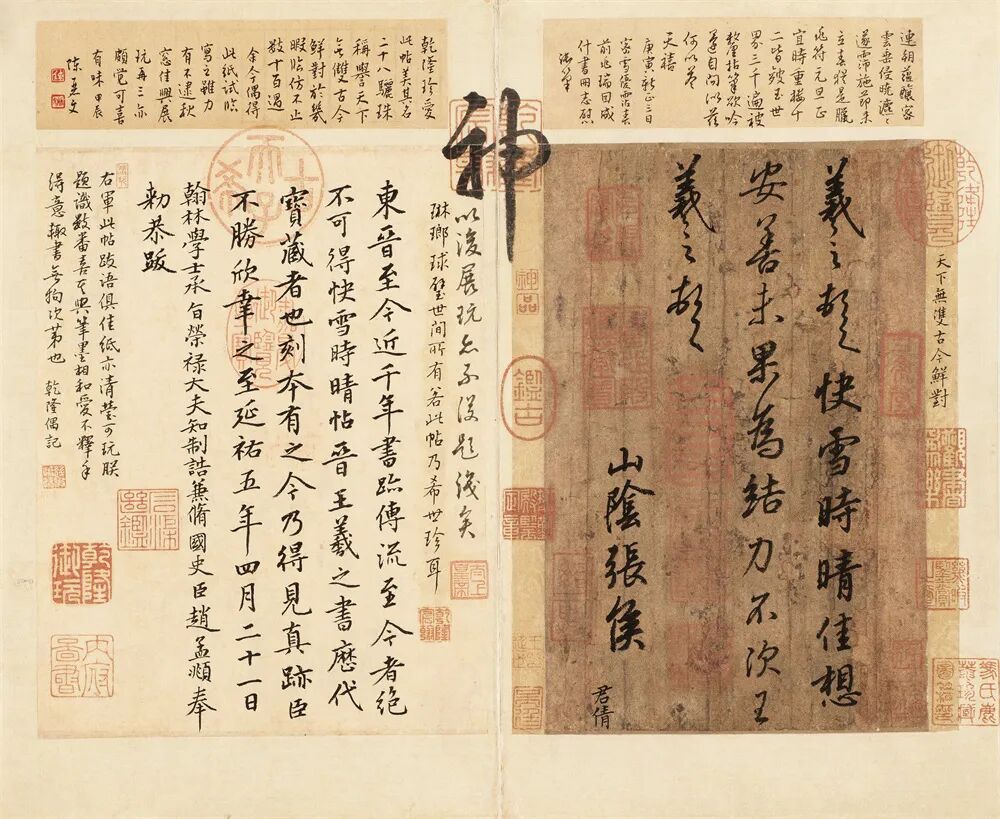 雲垂侵曉
遂霈沛施節未
立春猶是臘
兆符元旦正
宜時重樓千
二皆鋪玉世
界三千遍被
揩筆欲吟
還自問以茲
何以答
天禧
庚寅新正三日
密雪優霑春
前兆瑞因成
什書用志慰
御筆
乾隆珍愛
此帖美其名
二十八驪珠
稱譽天下
無雙古今
鮮對於幾
暇臨仿不止
數十百過
余今了偶得
此紙試臨
寫之雖力
有不逮秋
窓佳興展
玩再三亦
頗覺可喜
有味甲辰
天下無雙古今鮮對
羲之頓首快雪時晴佳想
安善未果為結力不次王
羲之頓首
山陰張侯
君倩
神品
鑑古
神
以後展玩亦不復題識矣
琳瑯球璧世間所有若此帖乃希世珍耳
東晉至今近千年書跡傳流至今者絕
不可得快雪時晴帖晉王羲之書歷代
寶藏者也刻本有之今乃得見真跡臣
不勝欣幸之至延祐五年四月二十一日
翰林學士承旨榮祿大夫知制誥兼脩國史臣趙孟頫奉
勑恭跋
右軍此帖跋語俱佳紙亦清瑩可玩朕
題識數番喜其與筆墨相和愛不釋手
得意輒書無拘次第也 乾隆偶記
乾隆御玩